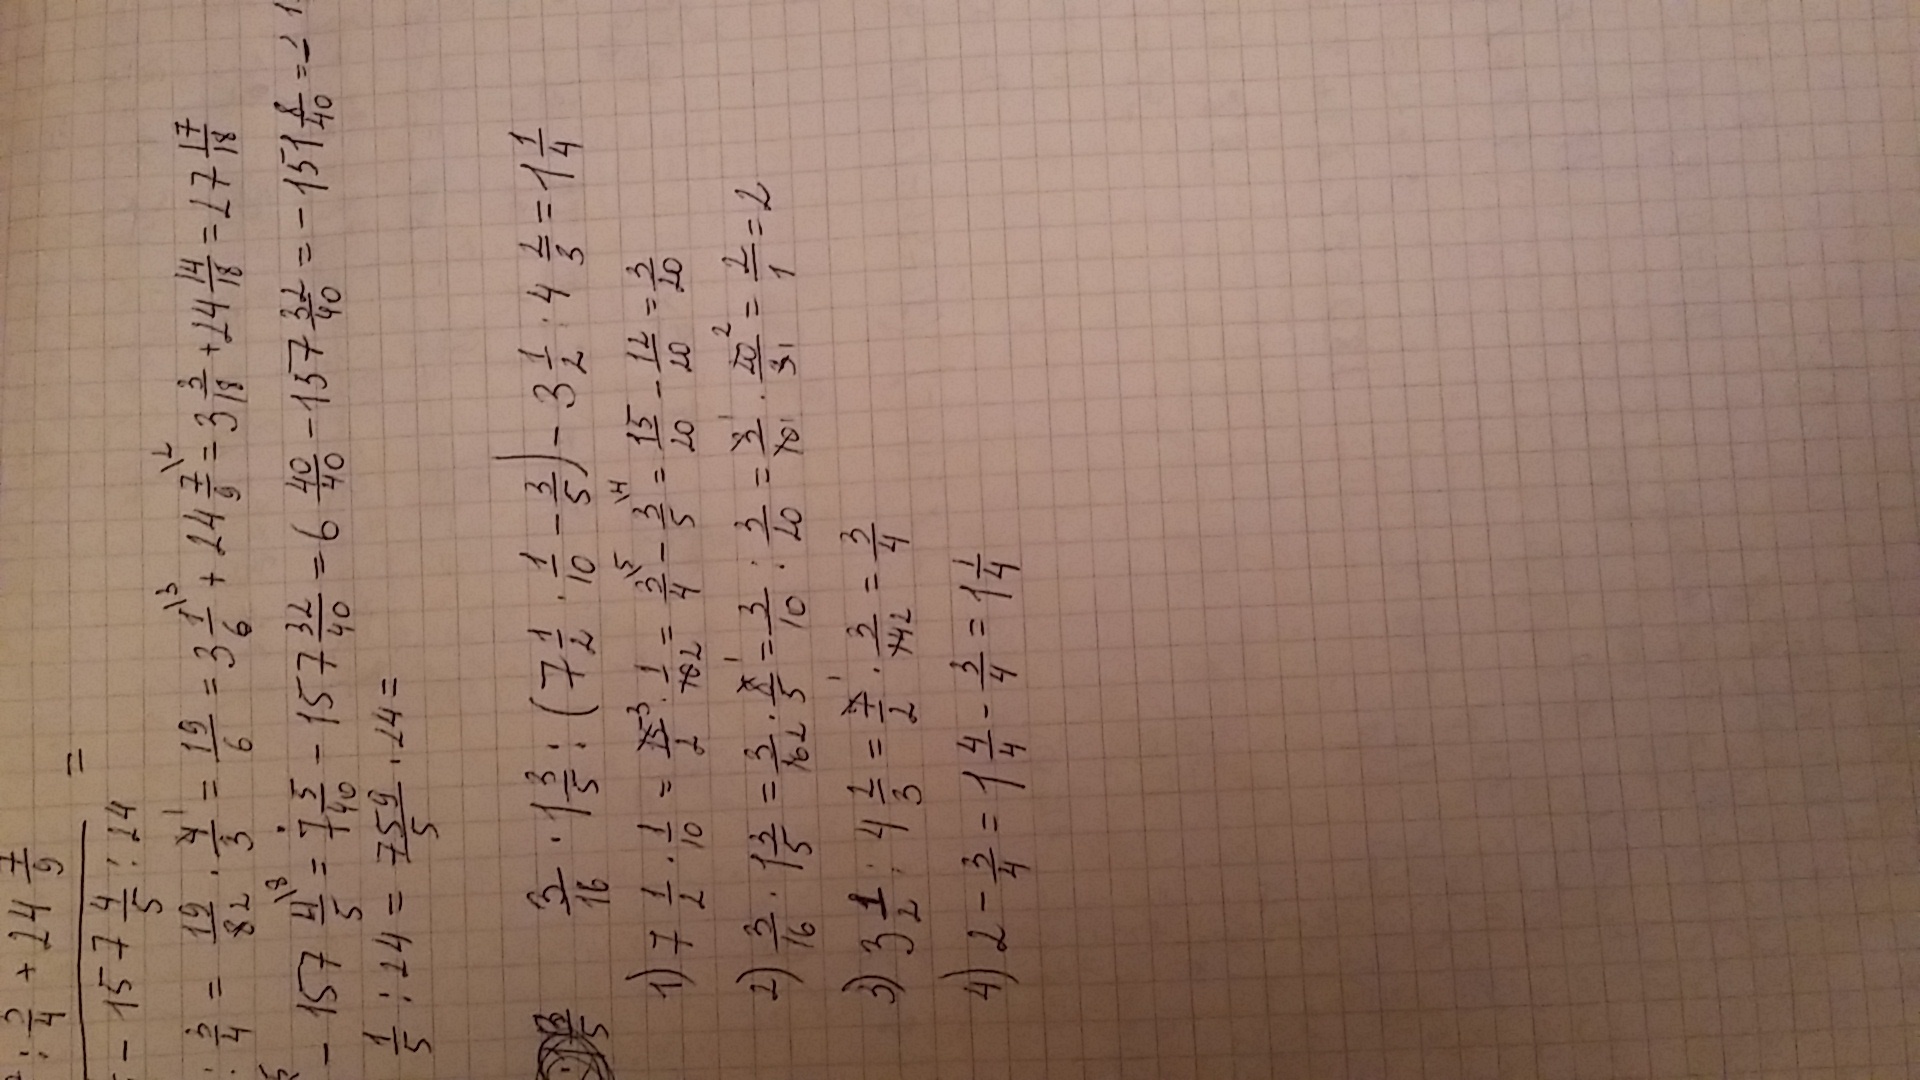 : 3/4 + 24 7/9
=
- 157 4/5 : 24
: 3/4 = 19/8 2 · 4 1/3 = 19/6 = 3 1/6 \3 + 24 7/9 \2 = 3 3/18 + 24 14/18 = 27 17/18
- 157 4/5 \8 = 7 5/40 - 157 32/40 = 6 40/40 - 157 32/40 = - 151 8/40 =
1/5 : 24 = 759/5 · 24 =
3/16 · 1 3/5 : (7 1/2 · 1/10 - 3/5) - 3 1/2 : 4 2/3 = 1 1/4
1) 7 1/2 · 1/10 = 15 3/2 · 1/10 2 = 3/4 \5 - 3/5 \4 = 15/20 - 12/20 = 3/20
2) 3/16 · 1 3/5 = 3/16 2 · 8 1/5 = 3/10 : 3/20 = 3 1/10 1 · 20 2/3 1 = 2/1 = 2
3) 3 1/2 : 4 2/3 = 7 1/2 · 3/14 2 = 3/4
4) 2 - 3/4 = 1 4/4 - 3/4 = 1 1/4